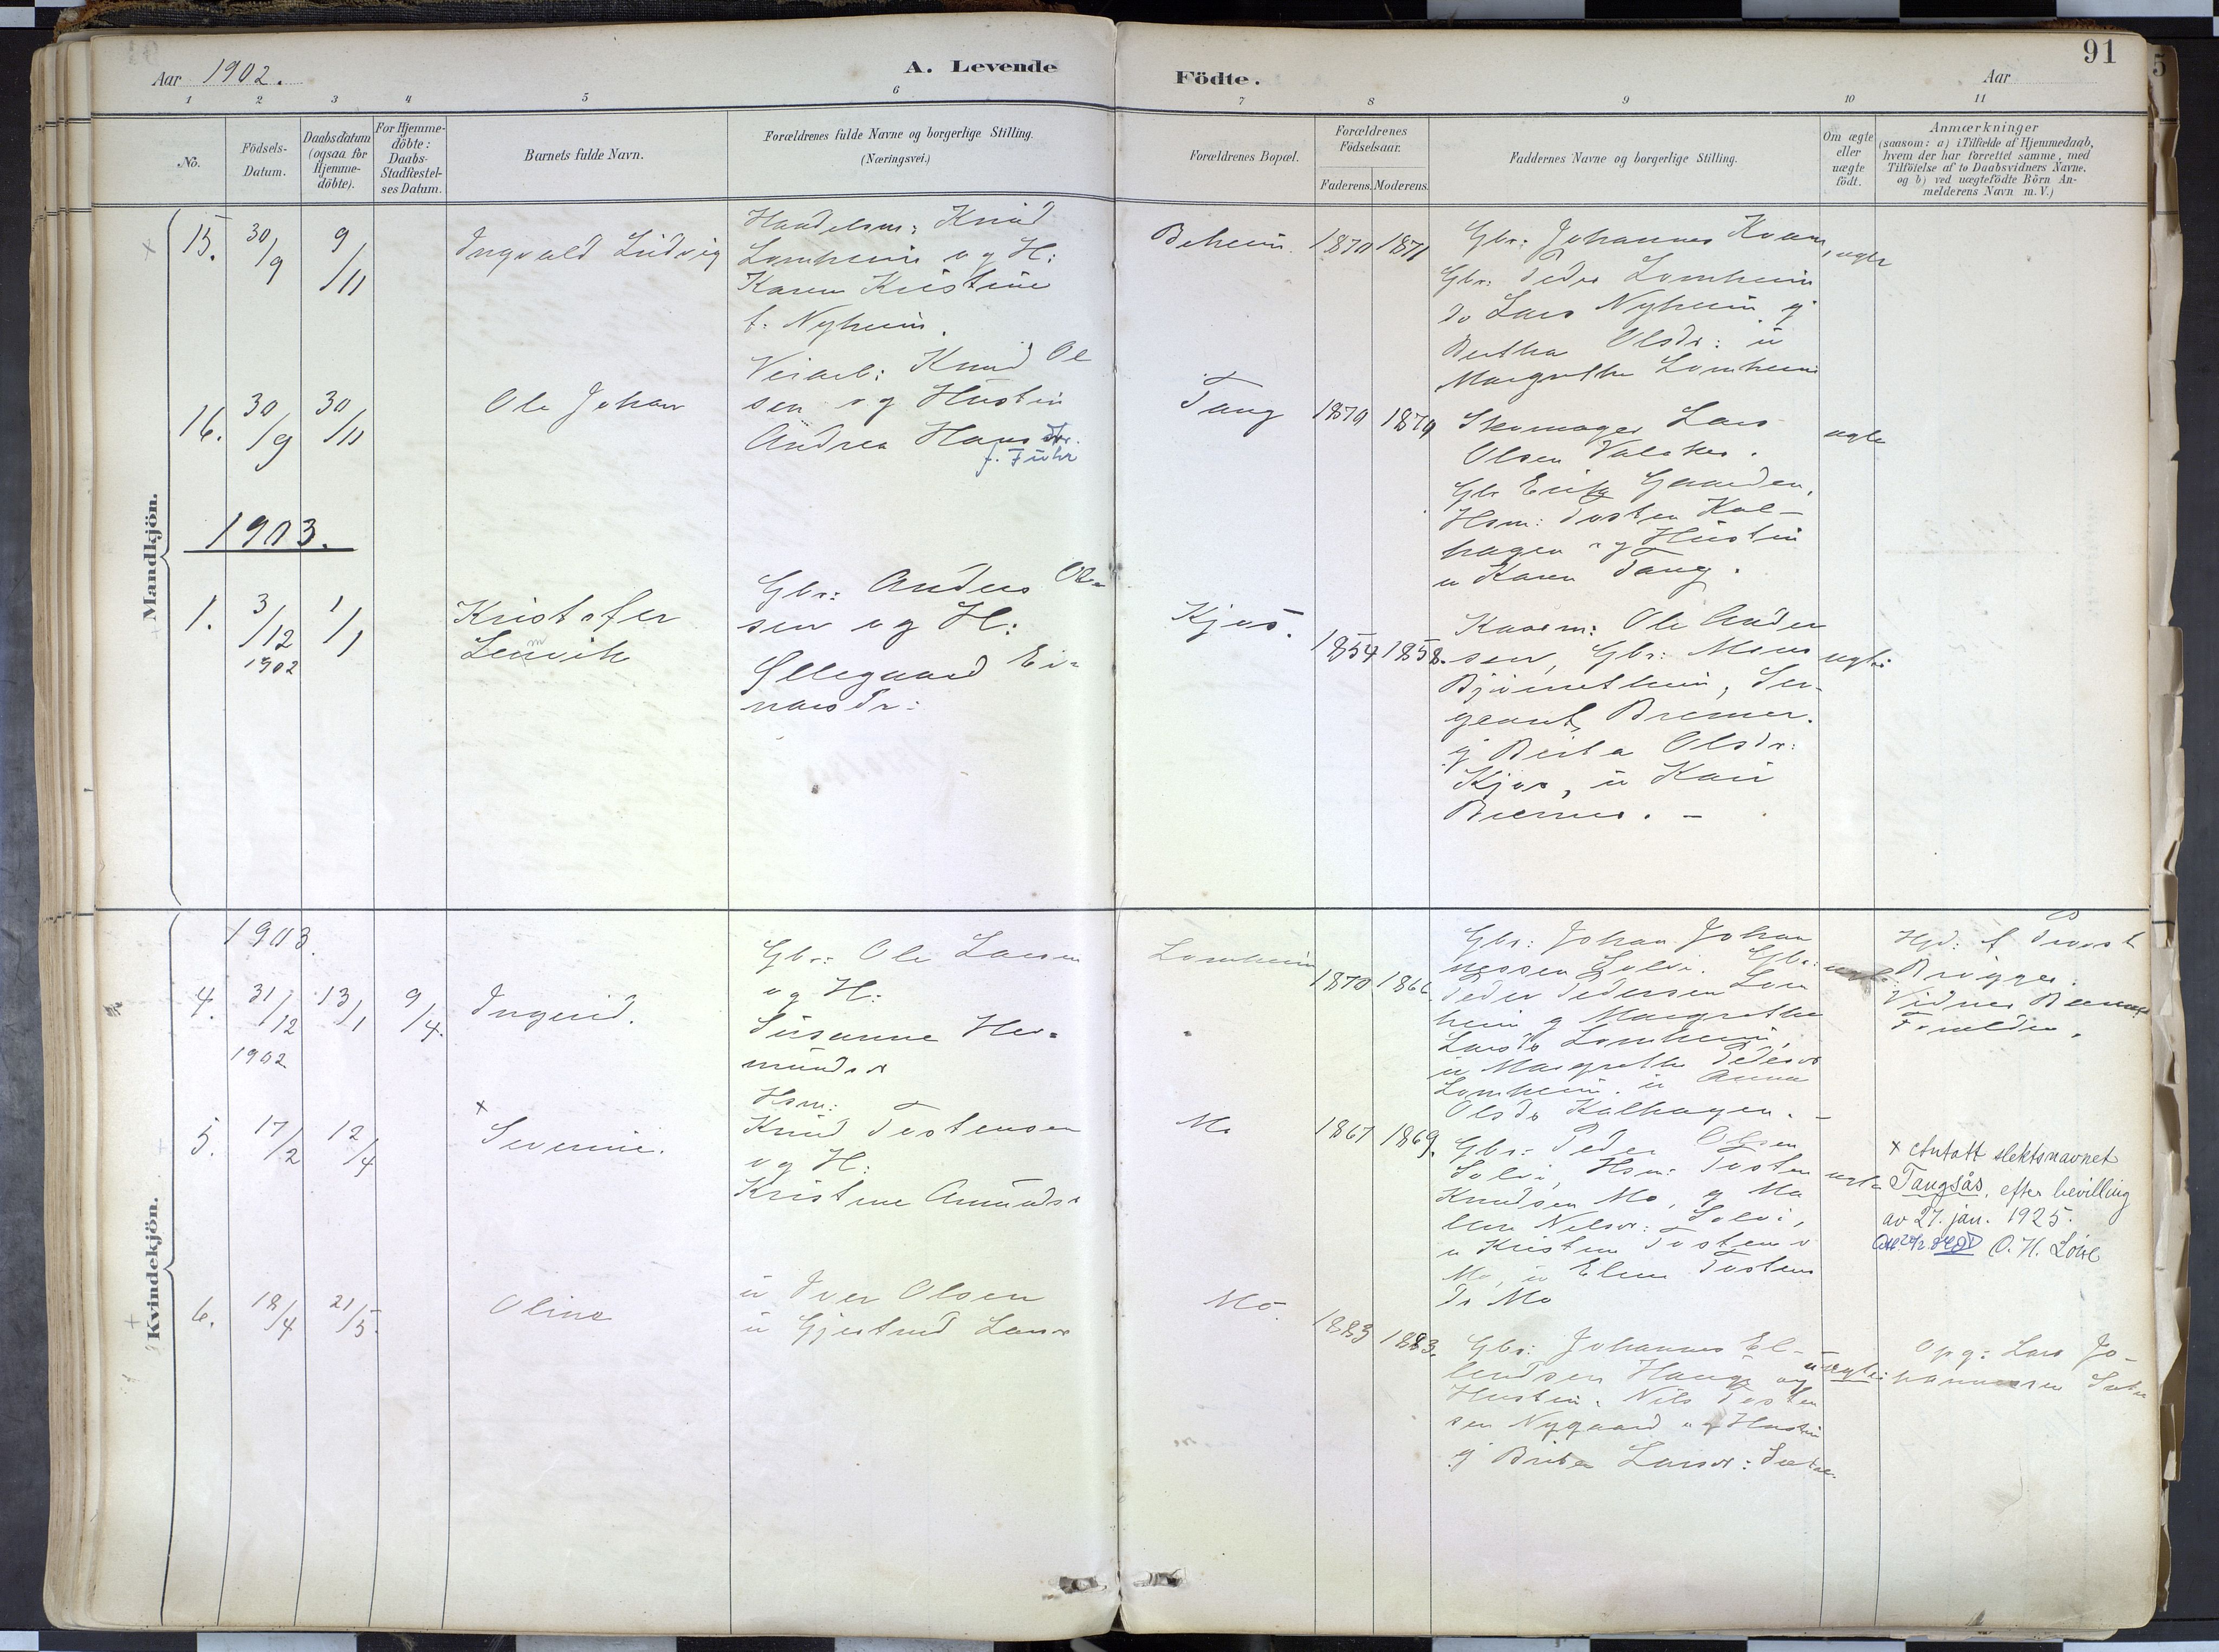 91
Aar 1902.
A. Levende
Födte.
Aar
1 2 3 4 5 6 7 8 9 10 11
No.
Födsels-
Datum.
Daabsdatum
(ogsaa for
Hjemme-
döbte).
For Hjemme-
döbte:
Daabs-
Stadfæstel-
ses Datum.
Barnets fulde Navn.
Forældrenes fulde Navne og borgerlige Stilling.
(Næringsvei.)
Forældrenes Bopæl.
Forældrenes
Födselsaar.
Faderens. Moderens.
Faddernes Navne og borgerlige Stilling.
Om ægte
eller
uægte
födt.
Anmærkninger
(saasom: a) i Tilfælde af Hjemmedaab,
hvem der har forrettet samme, med
Tilföielse af to Daabsvidners Navne.
og b) ved uægtefödte Börn An-
melderens Navn m. V.)
Mandkjön.
15. 30/9 9/11
Ingvald Ludvig
Handelsm: Knud
Lomheim og H:
Karen Kristine
f. Nyheim.
1870 1871
Gbr: Johannes Kvam,
Gbr: Peder Lomheim
do Lars Nyheim, g
Bertha Olsdr: u
Margrethe Lomheim
ægte
16. 30/9 30/11
Ole Johan
Veiarb: Knud Ol
sen og Hustru
Andrea Hansdtr.
f. Fuhr
Tang
1879 1879
Skomager Lars
Olsen
Gbr Erik Gaarden,
Hsm: Tosten Kal-
hagen og Hustru
u Karen Tang.
ægte
1903.
1. 3/12 1902 1/1
Kristofer
Lenvik
Gbr: Anders Ol-
sen og H:
Øllegaard Ei-
narsdr:
Kjos.
1854 1858.
Kaarm: Ole Ander
sen, Gbr: Mons
Bjørnetheim, Ser-
geant Bremer.
g Berta Olsdr:
Kjos, u Kari
Bremer. -
ægte
Kvindekjön.
1903.
4. 31/12 1902 13/1 9/4.
Ingerid.
Gbr: Ole Larsen
og H:
Susanne Her-
mundsd
Lomheim
1870 1866
Gbr: Johan Johan
nessen Solvi. Gbr:
Peder Pedersen Lom
heim g Margrethe
Larsdr Lomheim,
u Margrethe Pedersd
Lomheim. u Anna
Olsdr Kalhagen. -
Hjd: f Provst
Brügger.
Vidner Barnets
Forældre.
5. 17/2 12/4
× Severine.
Hsm:
Knud Tostensen
og H:
Kristine Amundsd
Mo
1867 1869.
Gbr: Peder Olsen
Solvi, Hsm: Tosten
Knudsen Mo, g Ma
Nilsd: Solvi,
u Kristen Tostens
Mo, u Elen Tostens
Dr Mo
ægte
× Antatt slektsnavnet
Tangsås, efter bevilling
av 27. jan. 1925.
O. H. Loise
6. 18/4 21/5.
Oline
u Iver Olsen
u Gjertrud Larsd
Mo.
1883 1883.
Gbr: Johannes El-
lendsen Hauge og
Hustru. Nils Tosten
sen Nygaard og Hustru
g Brita Larsd:
uægte:
Opg: Lars Jo-
hannessen